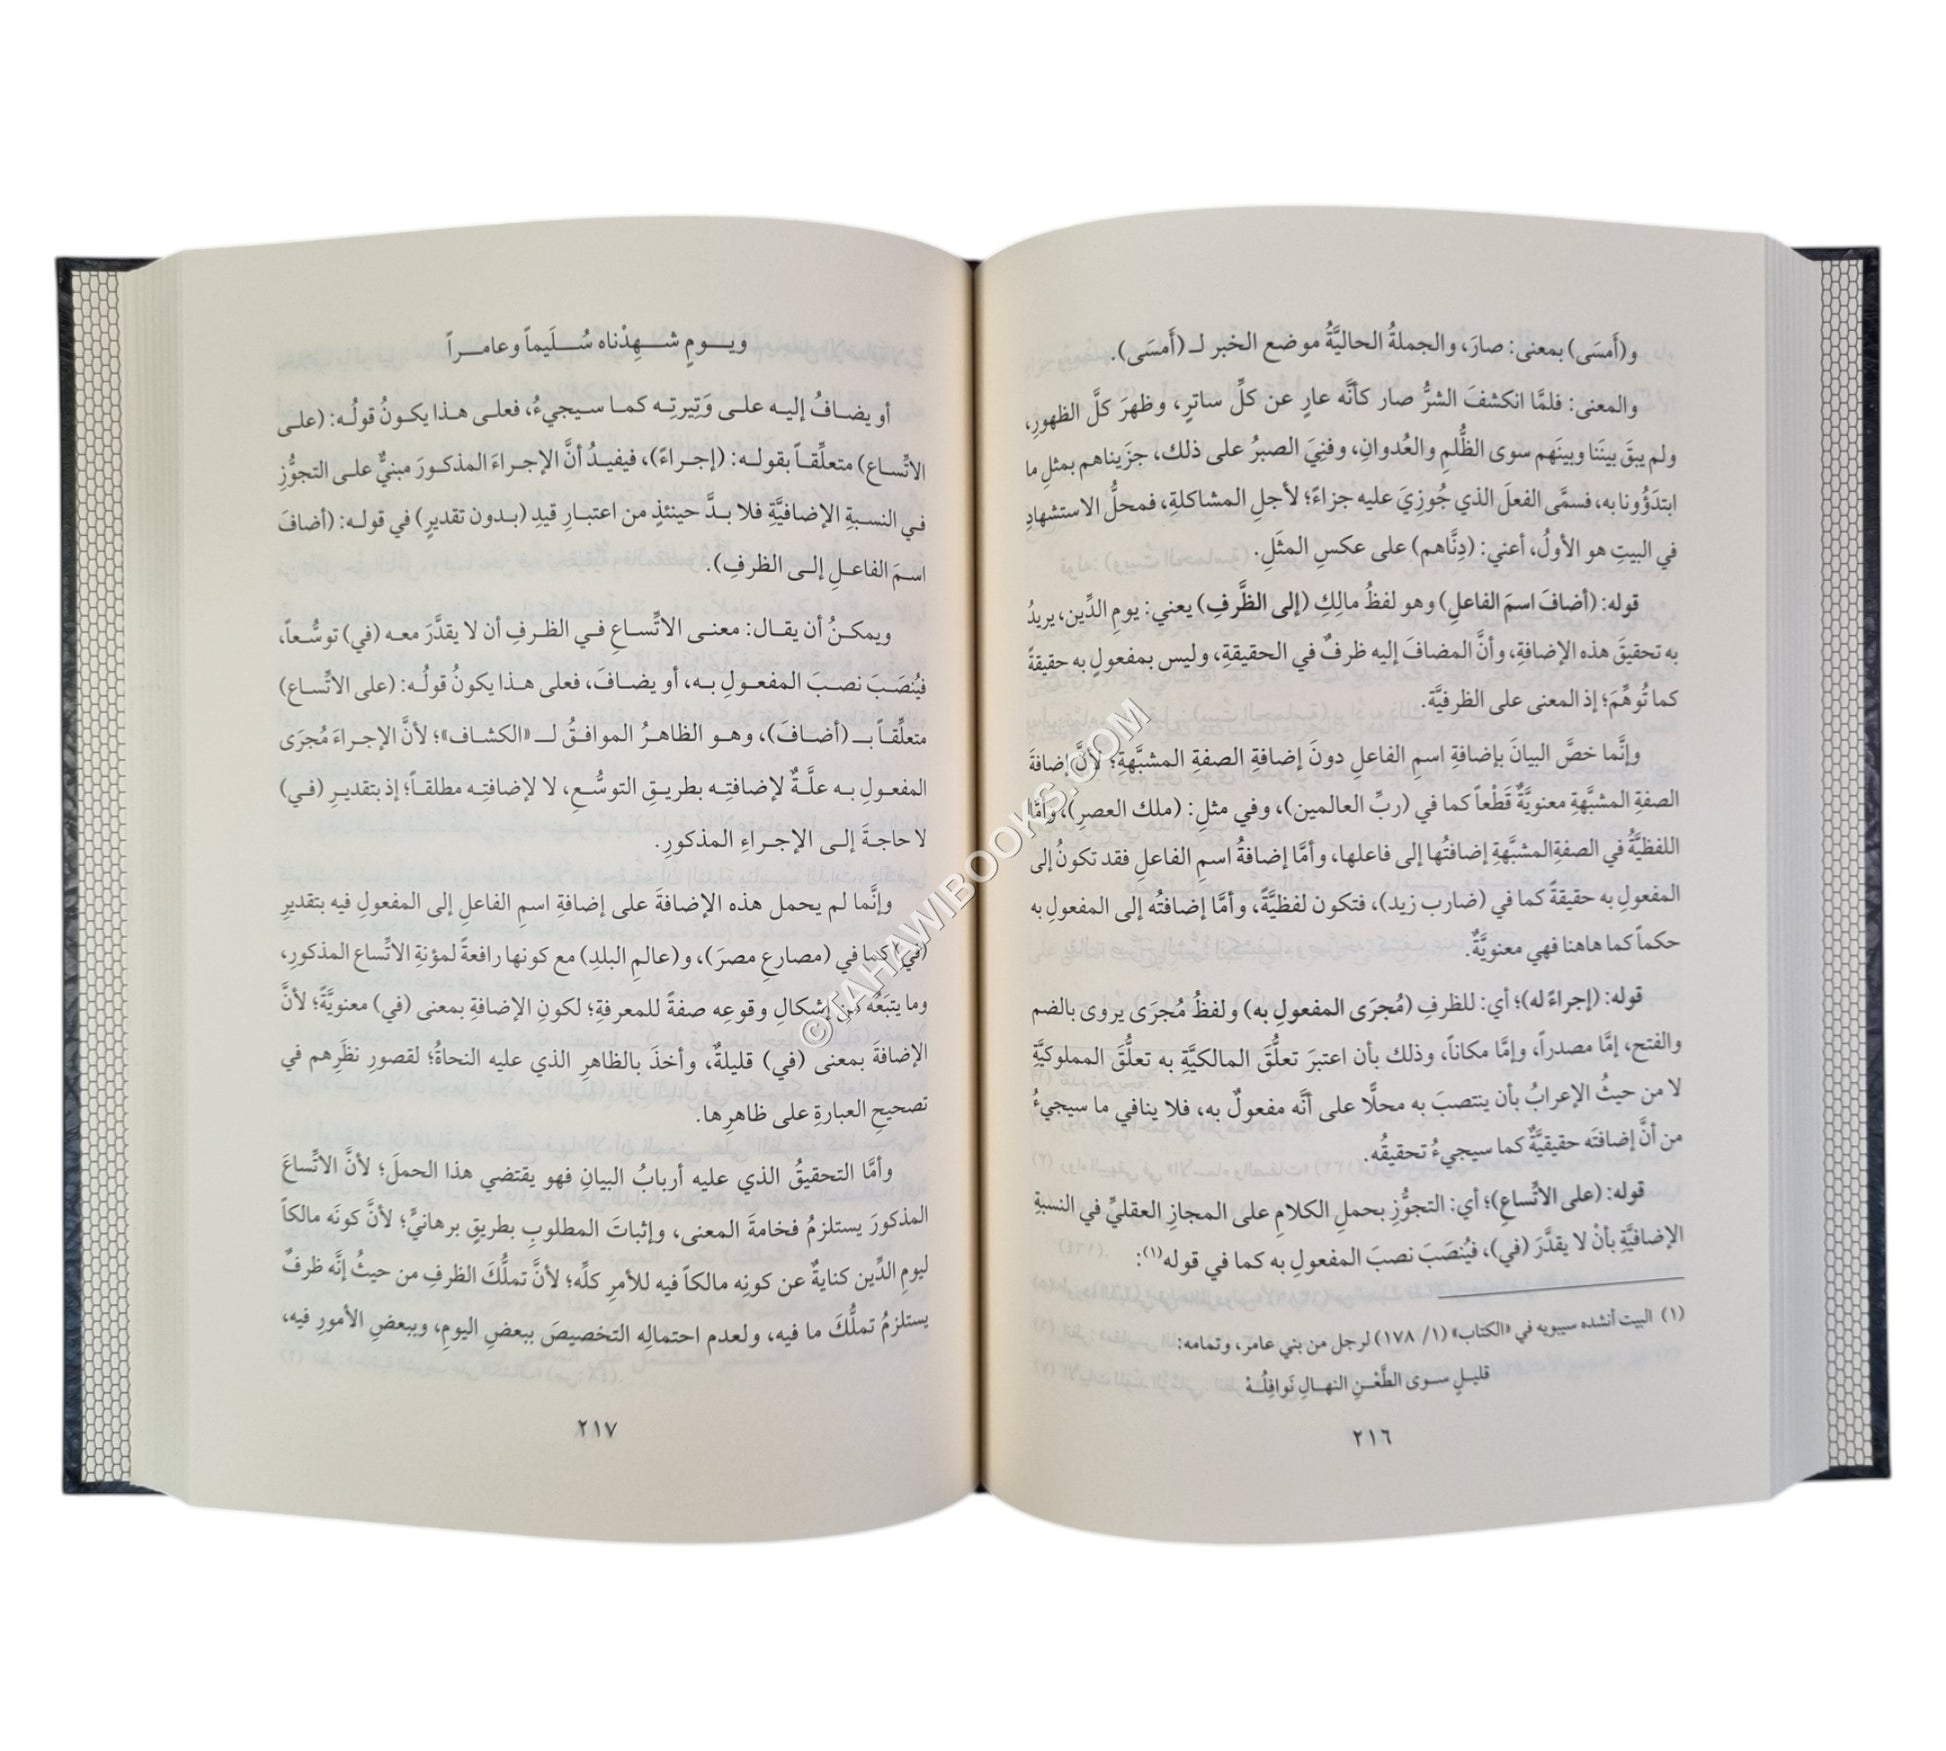 و(أَمسَى) بمعنى: صارَ، والجملةُ الحاليَّةُ موضع الخبر لـ (أَمسَى).
والمعنى: فلمَّا انكشفَ الشرُّ صار كأنَّه عارٍ عن كلِّ ساترٍ، وظهرَ كلَّ الظهورِ،
ولم يبقَ بيننَا وبينَهم سوى الظُّلمِ والعُدوانِ، وفنِيَ الصبرُ على ذلك، جزَيناهم بمثلِ ما
ابتدَؤُونا به، فسمَّى الفعلَ الذي جُوزِيَ عليه جزاءً؛ لأجلِ المشاكلةِ، فمحلُّ الاستشهادِ
في البيتِ هو الأولُ، أعني: (دِنَّاهم) على عكسِ المثَلِ.
قوله: (أضافَ اسمَ الفاعلِ) وهو لفظُ مالِكِ (إلى الظَّرفِ) يعني: يومِ الدِّين، يريدُ
به تحقيقَ هذه الإضافةِ، وأنَّ المضافَ إليه ظرفٌ في الحقيقةِ، وليس بمفعولٍ به حقيقةً
كما تُوهِّمَ؛ إذ المعنى على الظرفيَّة.
وإنَّما خصَّ البيانَ بإضافةِ اسمِ الفاعلِ دونَ إضافةِ الصفةِ المشبَّهةِ؛ لأنَّ إضافةَ
الصفةِ المشبَّهةِ معنويَّةٌ قَطْعاً كما في (ربِّ العالمين)، وفي مثلِ: (ملك العصرِ)، وأمَّا
اللفظيَّةُ في الصفةِ المشبَّهةِ إضافتُها إلى فاعلها، وأمَّا إضافةُ اسمِ الفاعلِ فقد تكونُ إلى
المفعولِ به حقيقةً كما في (ضارب زيد)، فتكون لفظيَّةً، وأمَّا إضافتُه إلى المفعولِ به
حكماً كما هاهنا فهي معنويَّةٌ.
قوله: (إجراءً له)؛ أي: للظرفِ (مُجرَى المفعولِ به) ولفظُ مُجرَى يروى بالضم
والفتح، إمَّا مصدراً، وإمَّا مكاناً، وذلك بأن اعتبرَ تعلُّقَ المالكيَّةِ به تعلُّقَ المملوكيَّةِ
لا من حيثُ الإعرابُ بأن ينتصبَ به محلًّا على أنَّه مفعولٌ به، فلا ينافي ما سيجيءُ
من أنَّ إضافتَه حقيقيَّةٌ كما سيجيءُ تحقيقُه.
قوله: (على الاتِّساعِ)؛ أي: التجوُّزِ بحملِ الكلامِ على المجازِ العقليِّ في النسبةِ
الإضافيَّةِ بأنْ لا يقدَّرَ (في)، فيُنصَبَ نصبَ المفعولِ به كما في قوله(١):
(١) البيت أنشده سيبويه في «الكتاب» (١/ ١٧٨) لرجل من بني عامر، وتمامه:
قليلٍ سوى الطَّعْنِ النهالِ نَوافِلُهْ
٢١٦
ويومٍ شهِدْناه سُلَيماً وعامراً
أو يضافُ إليه على وَتِيرتِه كما سيجيءُ، فعلى هذا يكونُ قولُه: (على
الاتِّساع) متعلِّقاً بقوله: (إجراءً)، فيفيدُ أنَّ الإجراءَ المذكورَ مبنيٌّ على التجوُّزِ
في النسبةِ الإضافيَّةِ فلا بدَّ حينئذٍ من اعتبارِ قيدِ (بدون تقديرٍ) في قوله: (أضافَ
اسمَ الفاعلِ إلى الظرفِ).
ويمكنُ أن يقال: معنى الاتِّساعِ في الظرفِ أن لا يقدَّرَ معه (في) توسُّعاً،
فيُنصَبَ نصبَ المفعولِ به، أو يضافَ، فعلى هذا يكونُ قولُه: (على الاتِّساع)
متعلِّقاً بـ (أضافَ)، وهو الظاهرُ الموافقُ لـ «الكشاف»؛ لأنَّ الإجراءَ مُجرَى
المفعولِ به علَّةٌ لإضافتِه بطريقِ التوسُّعِ، لا لإضافتِه مطلقاً؛ إذ بتقديرِ (في)
لا حاجةَ إلى الإجراءِ المذكورِ.
وإنَّما لم يحمل هذه الإضافةَ على إضافةِ اسمِ الفاعلِ إلى المفعولِ فيه بتقديرِ
(في) كما في (مصارعِ مصرَ)، و(عالمِ البلدِ) مع كونها رافعةً لمؤنةِ الاتِّساع المذكورِ،
وما يتبَعُه من إشكالِ وقوعِه صفةً للمعرفةِ؛ لكونِ الإضافةِ بمعنى (في) معنويَّةً؛ لأنَّ
الإضافةَ بمعنى (في) قليلةٌ، وأخذَ بالظاهرِ الذي عليه النحاةُ؛ لقصورِ نظَرِهم في
تصحيحِ العبارةِ على ظاهرِها.
وأمَّا التحقيقُ الذي عليه أربابُ البيانِ فهو يقتضي هذا الحملَ؛ لأنَّ الاتِّساعَ
المذكورَ يستلزمُ فخامةَ المعنى، وإثباتَ المطلوبِ بطريقٍ برهانيٍّ؛ لأنَّ كونَه مالكاً
ليومِ الدِّين كنايةٌ عن كونِه مالكاً فيه للأمرِ كلِّه؛ لأنَّ تملُّكَ الظرفِ من حيثُ إنَّه ظرفٌ
يستلزمُ تملُّكَ ما فيه، ولعدم احتمالِه التخصيصَ ببعضِ اليومِ، وببعضِ الأمورِ فيه،
٢١٧
©TAHAWIBOOKS.COM